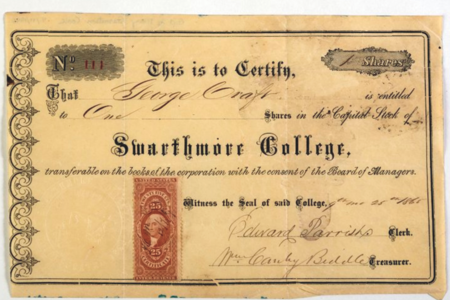 No. 111
1 Shares
This is to Certify,
That George Craft is entitled
to One Shares in the Capital Stock of
Swarthmore College,
transferable on the books of the corporation with the consent of the Board of Managers.
Witness the Seal of said College,
Edward Parrish Clerk.
Wm Canby Biddle Treasurer.
25 25